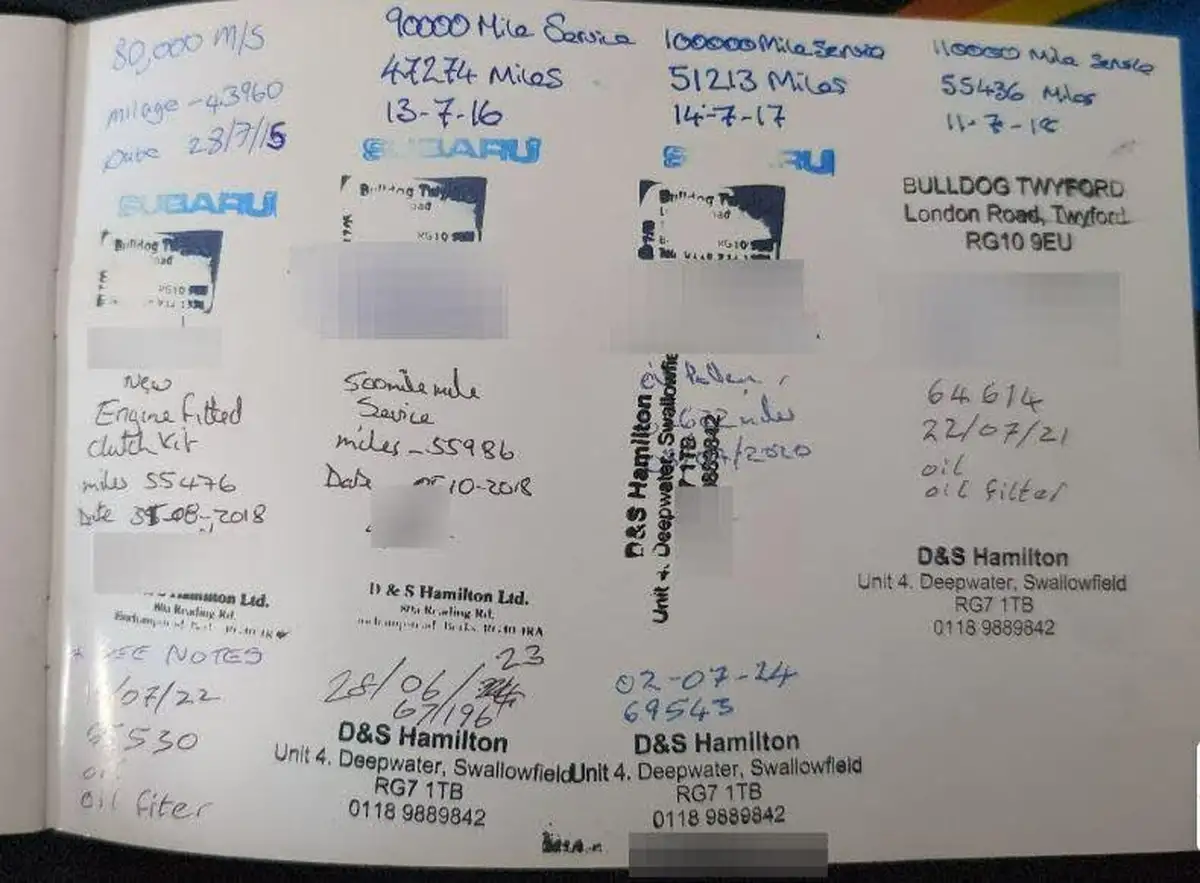 80,000 M/S
milage - 43960
Date 28/7/15
SUBARU
Bulldog
RG10
90000 Mile Service
47274 Miles
13-7-16
SUBARU
Bulldog Twy
RG10
100000 Mile Service
51213 Miles
14-7-17
S RU
Bulldog Tw
RG10
110000 Mile Service
55436 Miles
11-7-18
BULLDOG TWYFORD
London Road, Twyford
RG10 9EU
New
Engine Fitted
Clutch Kit
miles 55476
Date 31-08-2018
Hamilton Ltd.
Reading Rd.
500 mile mile
Service
miles - 55986
Date 10-2018
D & S Hamilton Ltd.
Reading Rd.
RG40 1RA
miles
/2020
D&S Hamilton
Unit 4. Deepwater, Swallowfie
7 1TB
9889842
64614
22/07/21
oil
oil filter
D&S Hamilton
Unit 4. Deepwater, Swallowfield
RG7 1TB
0118 9889842
SEE NOTES
/07/22
5530
oil
oil fiter
23
28/06/
67/196
D&S Hamilton
Unit 4. Deepwater, Swallowfield
RG7 1TB
0118 9889842
02-07-24
69543
D&S Hamilton
Unit 4. Deepwater, Swallowfield
RG7 1TB
0118 9889842